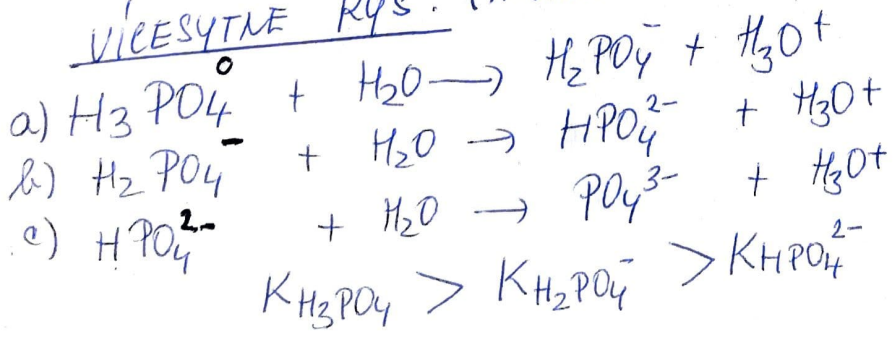 VÍCESYTNÉ KYS.
a) H₃PO₄⁰ + H₂O → H₂PO₄⁻ + H₃O+
b) H₂PO₄⁻ + H₂O → HPO₄²⁻ + H₃O+
c) HPO₄²⁻ + H₂O → PO₄³⁻ + H₃O+
K H₃PO₄ > K H₂PO₄⁻ > K HPO₄²⁻